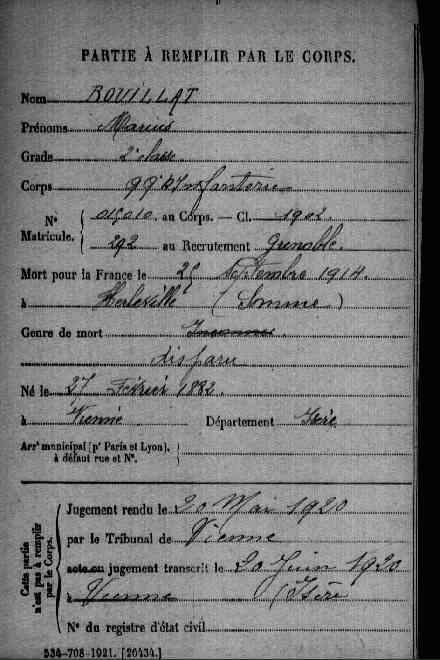 PARTIE À REMPLIR PAR LE CORPS.
Nom ROUILLAT
Prénoms Marius
Grade 2e classe
Corps 99e d'Infanterie
N° Matricule. { 015010 au Corps. — Cl. 1902.
292 au Recrutement Grenoble.
Mort pour la France le 25 Septembre 1914.
à Herleville (Somme)
Genre de mort Inconnu.
disparu
Né le 27 Février 1882.
à Vienne Département Isère
Arrt municipal (pr Paris et Lyon), à défaut rue et N°.
Cette partie n'est pas à remplir par le Corps.
Jugement rendu le 20 Mai 1920
par le Tribunal de Vienne
acte ou jugement transcrit le 20 Juin 1920
à Vienne (Isère
N° du registre d'état civil
534-708-1921. [26434.]